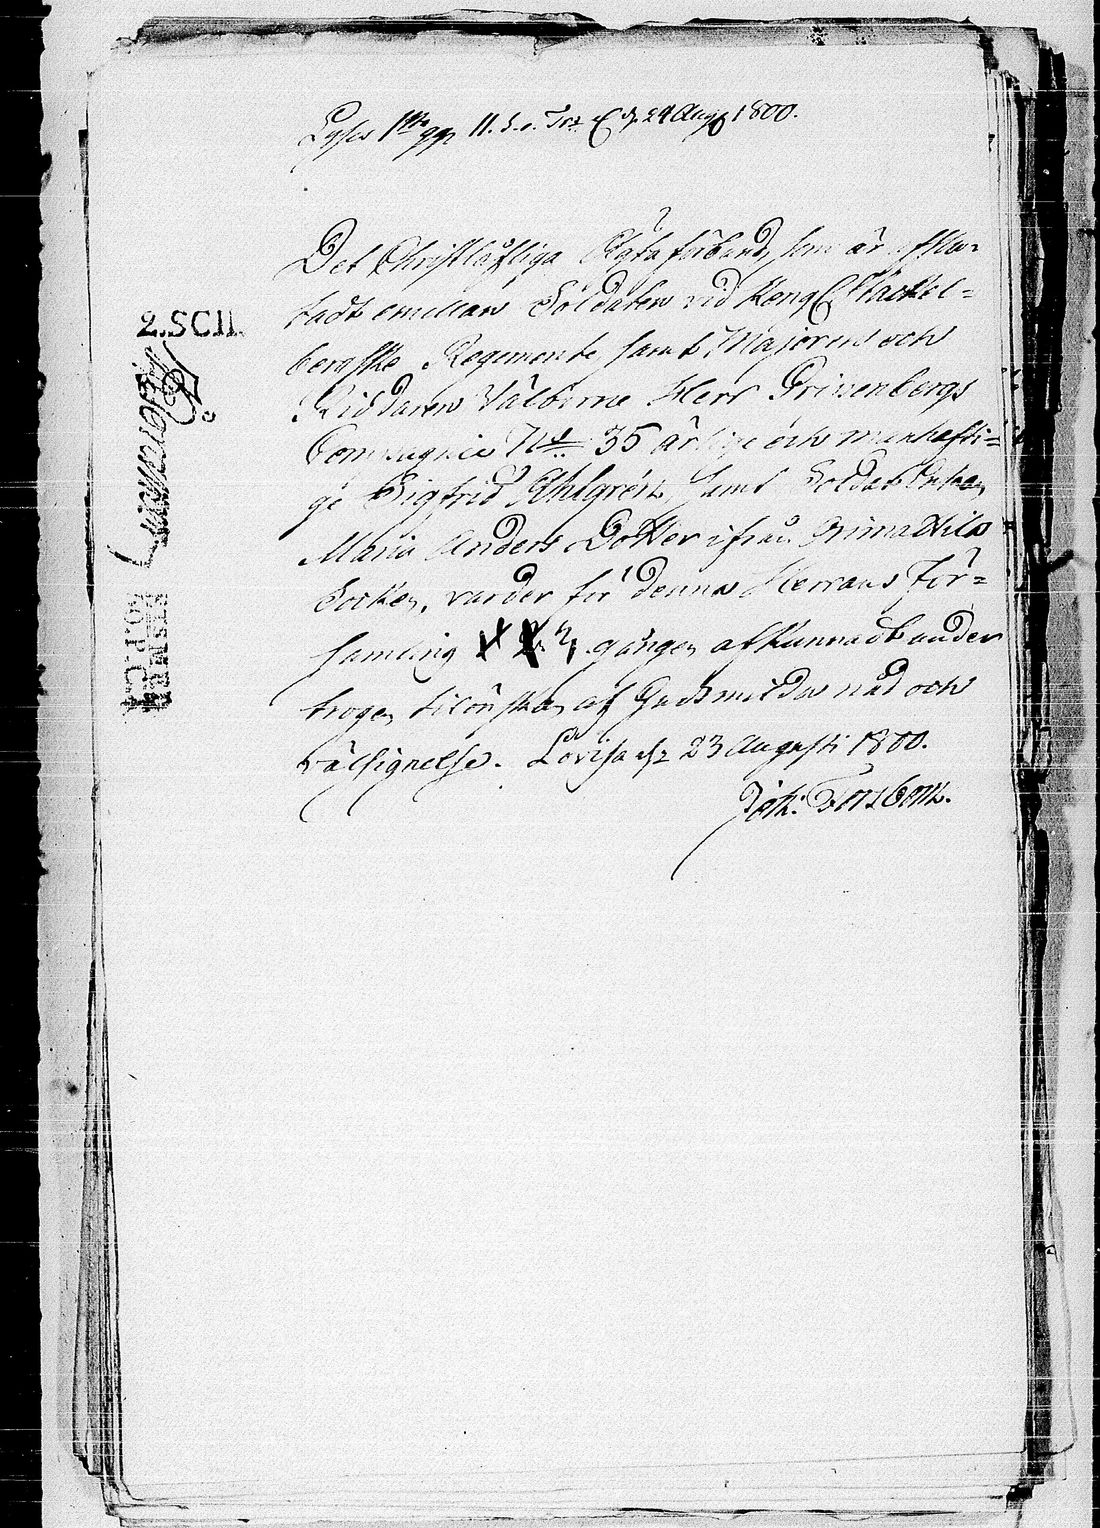 Lyses 1sta gg. 11. S. e. Tr. d. 24 Aug 1800.
Det Christlåfliga Äkta förbund, som är afslu-
tadt emellan Soldaten vid Kongl. Stackel-
bergske Regemente samt Majorens och
Riddaren Välborne Herr Gripenbergs
Compagnie No 35 ärlige och manhafti-
ge Sigfrid Ahlgrén samt Soldat Enkan
Maria Anders Dotter ifrån
Socken, varder för denna Herrans För-
samling gången afkunnadt under
trogen tilönskan af Guds milda nåd och
välsignelse. Lovisa d. 23 Augusti 1800.
Joh: Forsbom.
2.SCII.